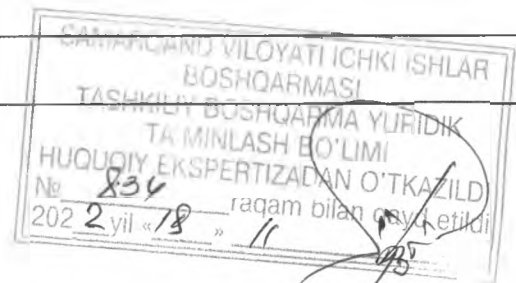 SAMARQAND VILOYATI ICHKI ISHLAR
BOSHQARMASI
TASHKILIY BOSHQARMA YURIDIK
TA'MINLASH BO'LIMI
HUQUQIY EKSPERTIZADAN O'TKAZILDI
№ 834 raqam bilan qayd etildi
2022 yil «18» 11